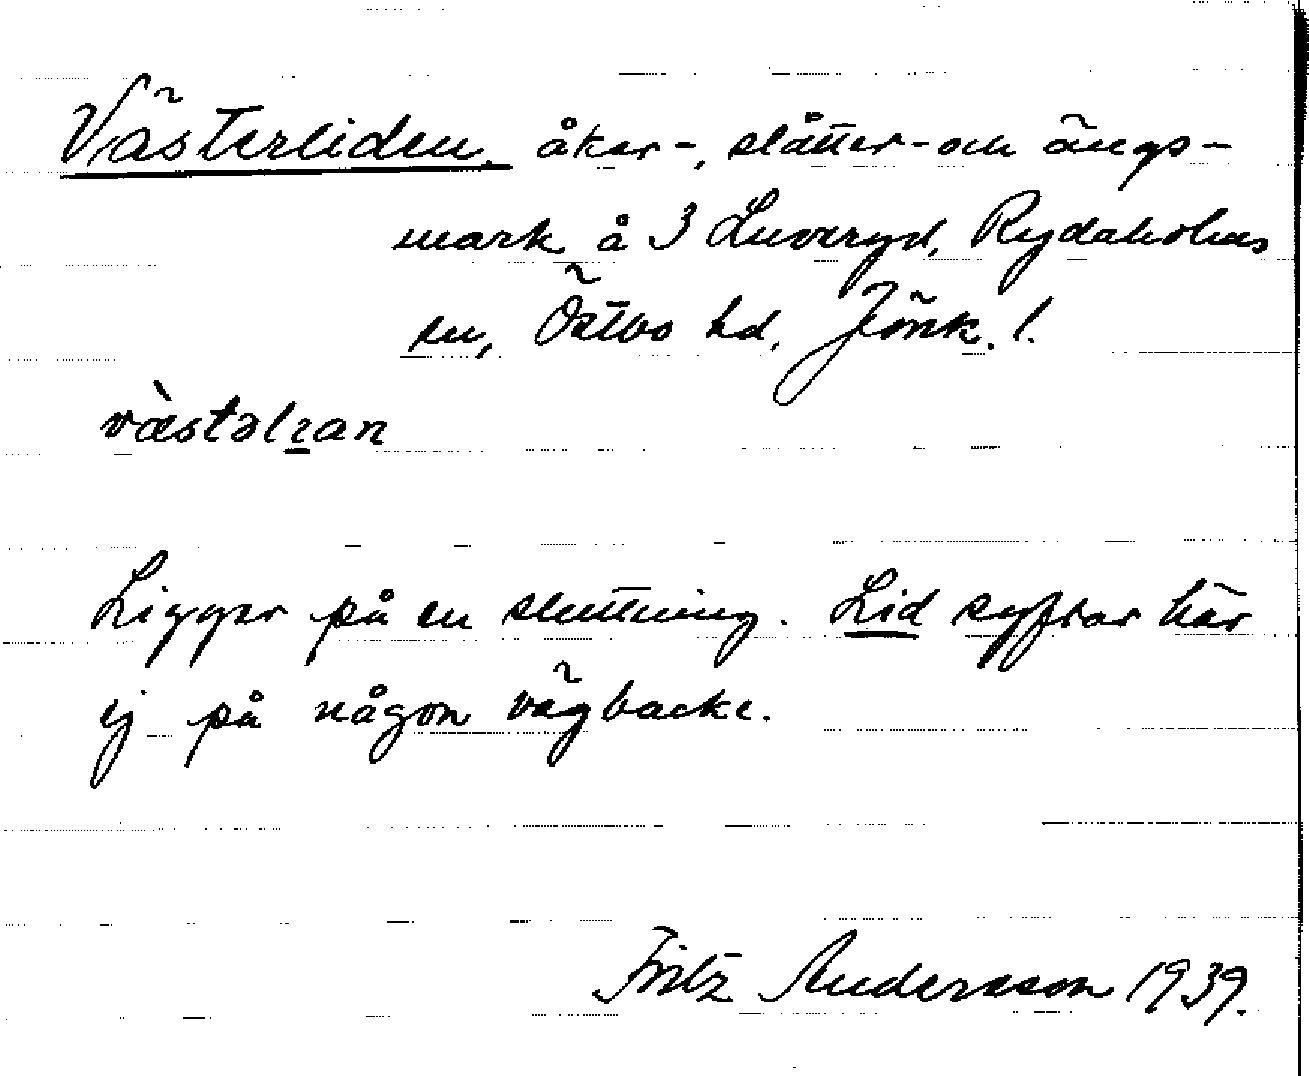 Västerliden, åker-, slåtter- och ängs-
mark å 3 Luveryd, Rydaholms
sn, Östbo hd, Jönk. l.
Ligger på en sluttning. Lid syftar här
ej på någon vägbacke.
Fritz Andersson 1939.